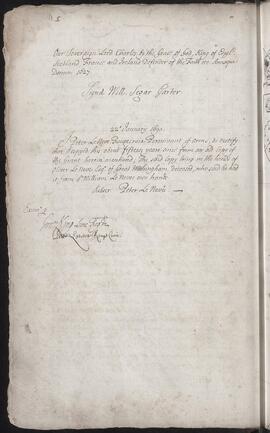 5
Our Sovereign Lord Charles by the Grace of God, King of Engl:
Scotland France and Ireland Defender of the Faith etc Annoque
Domini 1627
Sign'd Will. Segar Garter
22th January 1690.
I Peter Le Neve Rougecroix Pursuivant of Arms, do certify
that I copyed this about fifteen years since from an old copy of
the Grant herein mentioned, the said copy being in the hands of
Oliver Le Neve Esq. of Great Witchingham deceased, who said he had
it from Sr William Le Neve own hands
Peter Le Neve
Exam'd
King